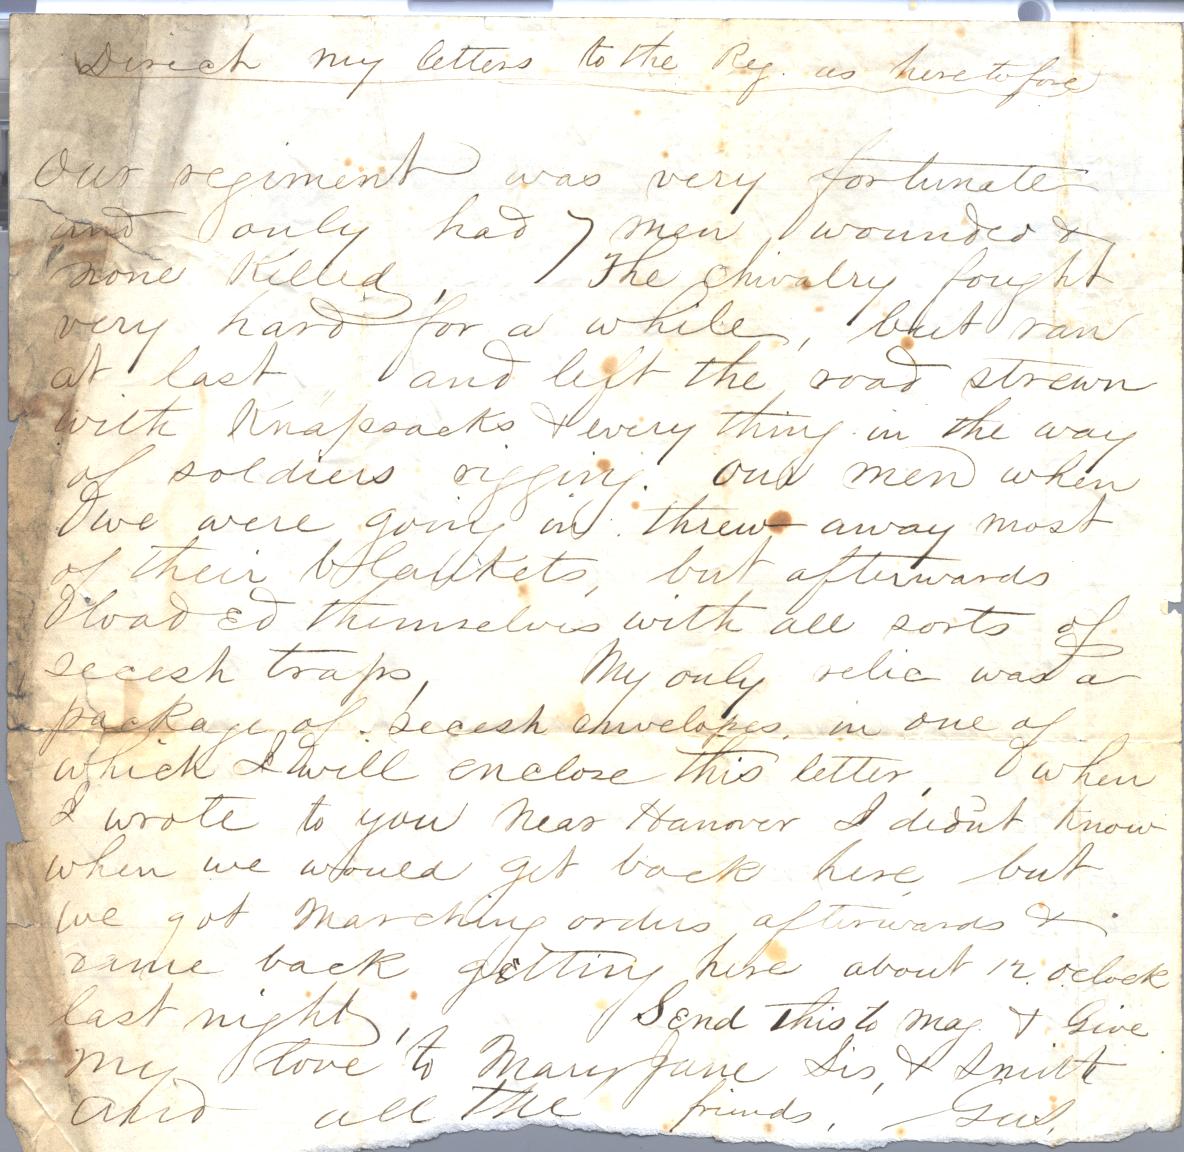 Direct my letters to the Reg. as heretofore
Our regiment was very fortunate
and only had 7 men wounded &
none Killed, The chivalry fought
very hard for a while, but ran
at last and left the road strewn
with Knapsacks & every thing in the way
of soldiers rigging. Our men when
we were going in threw away most
of their blankets, but afterwards
loaded themselves with all sorts of
secesh traps, My only relic was a
package of secesh envelopes. in one of
which I will enclose this letter, when
I wrote to you near Hanover I didn't know
when we would get back here, but
we got marching orders afterwards &
came back getting here about 12. oclock
last night, Send this to Mag. & Give
my love to Mary Jane Sis, & Smith
and all the friends, Gus.